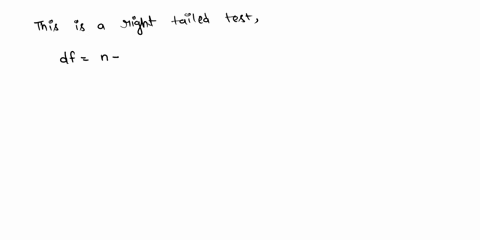 This is a right tailed test,
df = n -